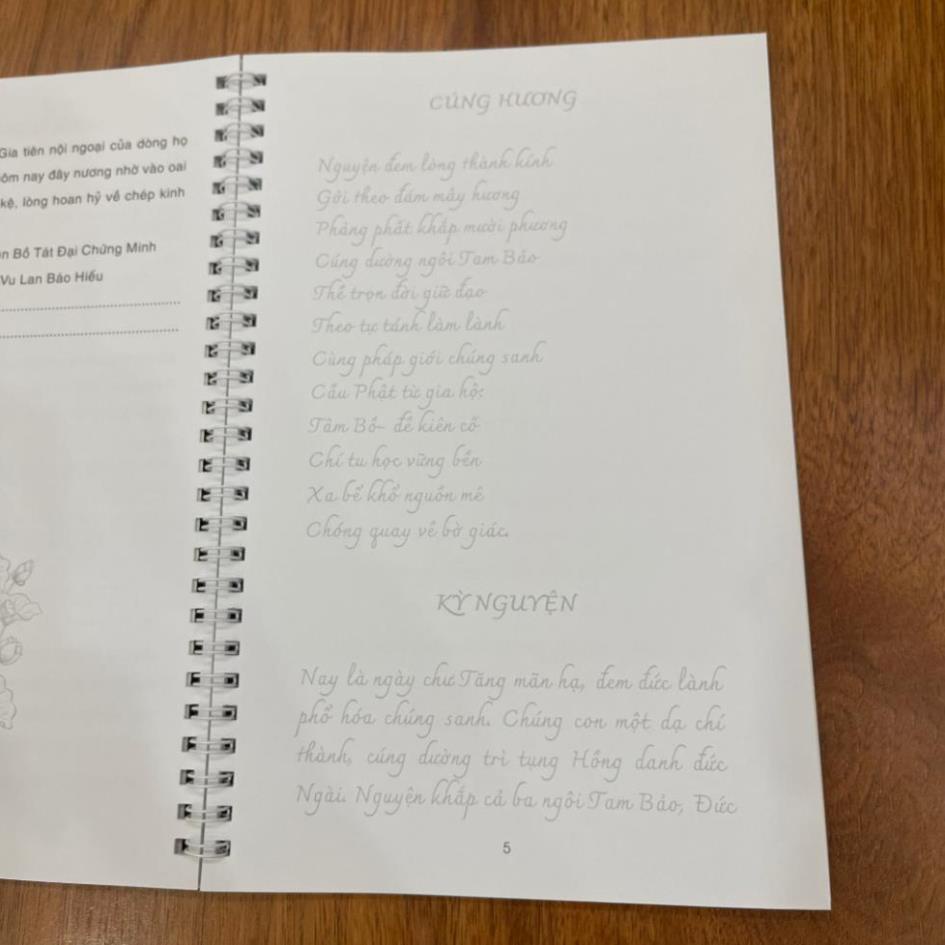 Gia tiên nội ngoại của dòng họ
ôm nay đây nương nhờ vào oai
kệ, lòng hoan hỷ về chép kinh
n Bồ Tát Đại Chứng Minh
Vu Lan Báo Hiếu
CÚNG HƯƠNG
Nguyện đem lòng thành kính
Gởi theo đám mây hương
Phảng phất khắp mười phương
Cúng dường ngôi Tam Bảo
Thề trọn đời giữ đạo
Theo tự tánh làm lành
Cùng pháp giới chúng sanh
Cầu Phật từ gia hộ:
Tâm Bồ- đề kiên cố
Chí tu học vững bền
Xa bể khổ nguồn mê
Chóng quay về bờ giác.
KỲ NGUYỆN
Nay là ngày chư Tăng mãn hạ, đem đức lành
phổ hóa chúng sanh. Chúng con một dạ chí
thành, cúng dường trì tụng Hồng danh đức
Ngài. Nguyện khắp cả ba ngôi Tam Bảo, Đức
5